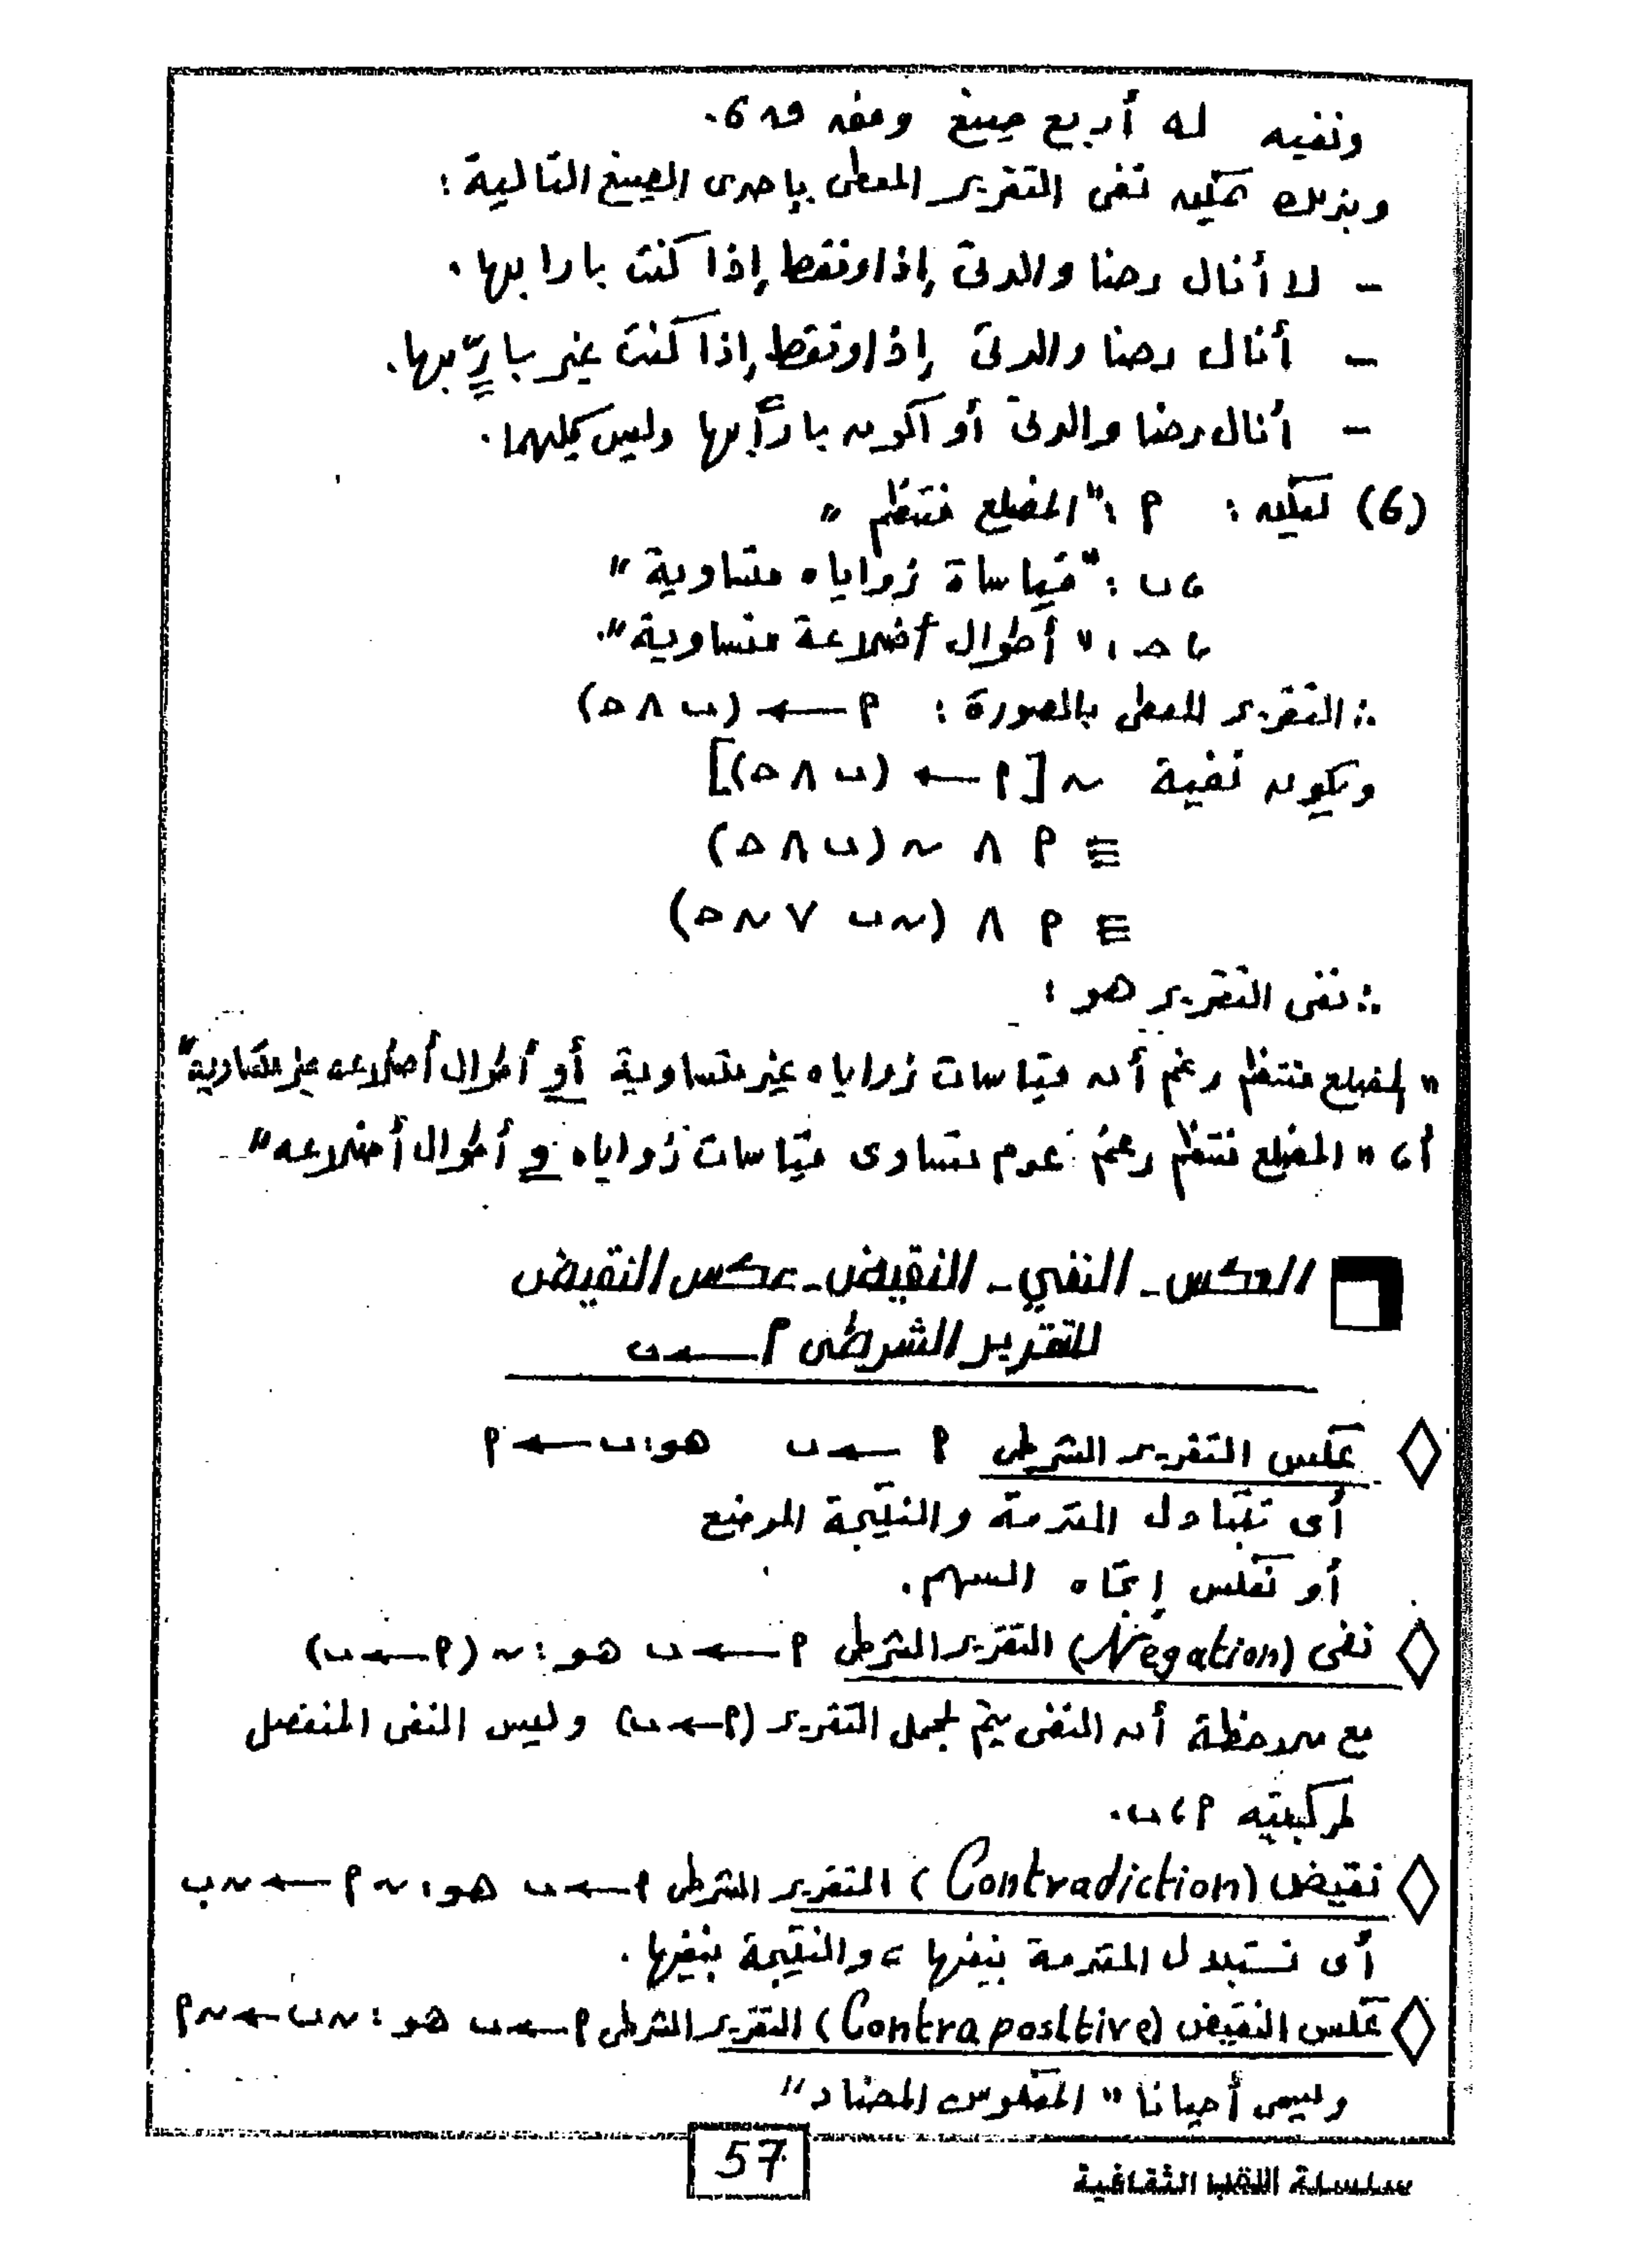 ونفيه له أربع صيغ ومنه ق 6.
وبذلك يمكن نفى التقرير المعطى بإحدى الصيغ التالية :
– لا أنال رضا والدىّ إذا وفقط إذا كنت بارا بهما .
– أنال رضا والدىّ إذا وفقط إذا كنت غير بارٍّ بهما .
– أنال رضا والدىّ أو أكون باراً بهما وليس كليهما .
(6) ليكن : P : "المضلع منتظم "
، ں : "قياساة زواياه متساوية "
، ح : " أطوال أضلاعة متساوية ".
∴ التقرير المعطى بالصورة : P ← (ں ∧ ح)
ويكون نفية ~ [P ← (ں ∧ ح)]
≡ P ∧ ~ (ں ∧ ح)
≡ P ∧ (~ں ∨ ~ح)
∴ نفى التقرير هو :
" المضلع منتظم رغم أن قياسات زواياه غير متساوية أو أطوال أضلاعه غير متساوية "
أى " المضلع منتظم رغم عدم تساوى قياسات زواياه و أطوال أضلاعه "
العكس - النفي - النقيض - عكس النقيض
للتقرير الشرطى P ← ں
◇ عكس التقرير الشرطى P ← ں هو : ں ← P
أى تتبادل المقدمة والنتيجة الموضع
أو نعكس إتجاه السهم .
◇ نفى (Negation) التقرير الشرطى P ← ں هو : ~ (P ← ں)
مع ملاحظة أن النفى يتم لمجمل التقرير (P ← ں) وليس النفى المنفصل
لمركبتيه P ، ں .
◇ نقيض (Contradiction) التقرير الشرطى P ← ں هو : ~ P ← ~ ب
أى نستبدل المقدمة بنفيها ، والنتيجة بنفيها .
◇ عكس النقيض (Contrapositive) التقرير الشرطى P ← ں هو : ~ ں ← ~ P
ويسمى أحيانا " المعكوس المضاد "
57
سلسلة الثقافية